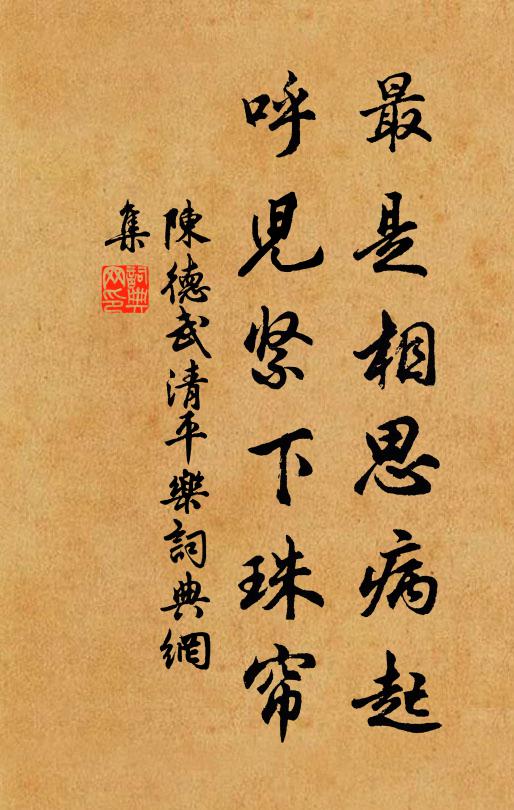 最是相思病起
呼児紧下珠帘
陳德武清平樂詞典網
集
詞典
网印